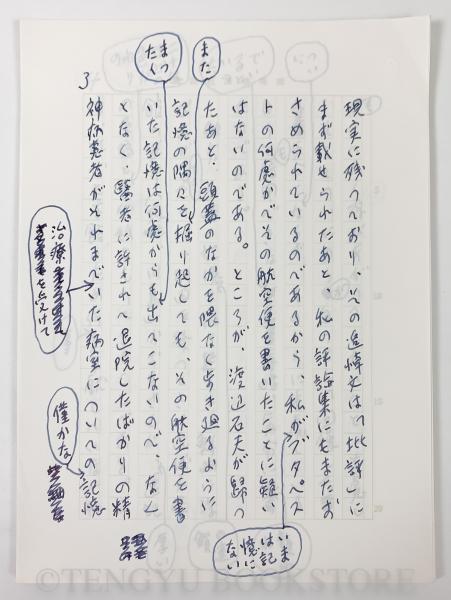 現実に残つており、その追悼文は「批評」に
まず載せられたあと、私の評論集にもまたお
さめられているのであるから、私がブダペス
トの何處かでその航空便を書いたことに疑い
はないのである。ところが、渡辺石夫が歸つ
たあと、頭蓋のなかを隈なく歩き廻るように
記憶の隅々を掘り起しても、その航空便を書
いた記憶は何處からも出てこないので、なん
となく、醫者に許されて退院したばかりの精
神病患者がそれまでいた病室についての記憶
いま
は記
憶に
ない
また
まつ
たく
3
治療
を受けて
僅かな
©TENGYU BOOKSTORE